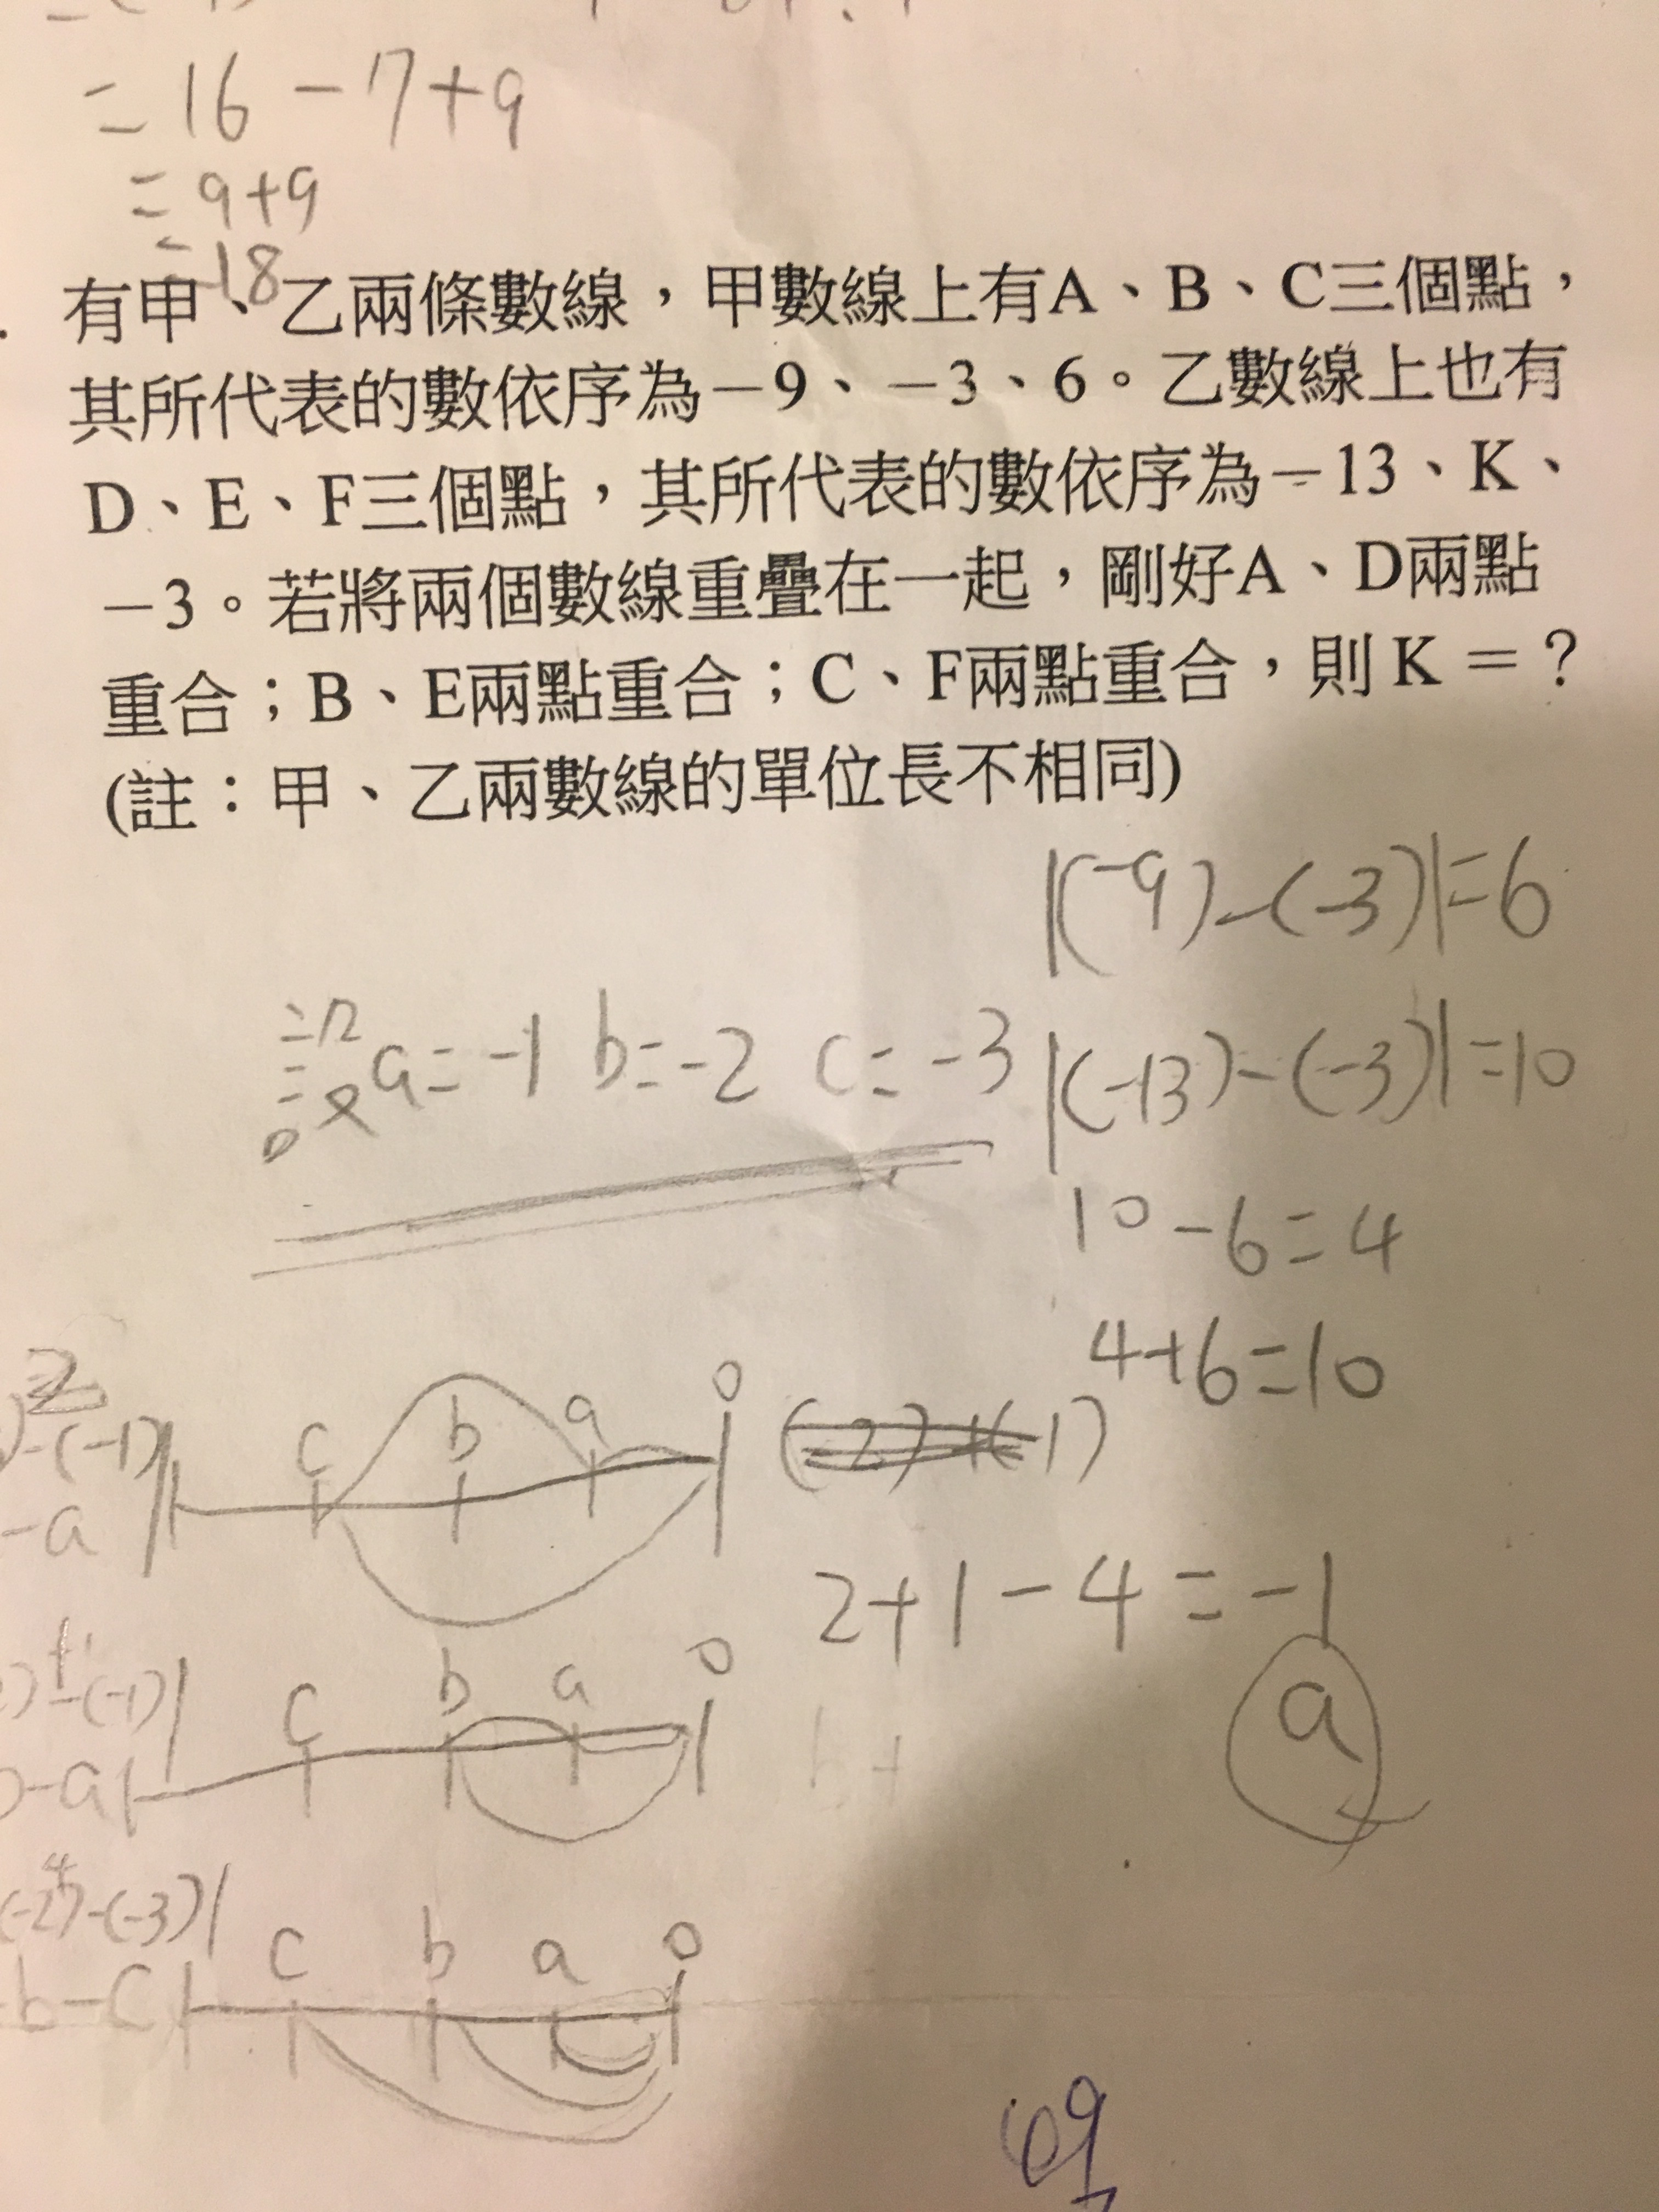 = 16 - 7 + 9
= 9 + 9
= 18
有甲、乙兩條數線，甲數線上有A、B、C三個點，
其所代表的數依序為－9、－3、6。乙數線上也有
D、E、F三個點，其所代表的數依序為－13、K、
－3。若將兩個數線重疊在一起，剛好A、D兩點
重合；B、E兩點重合；C、F兩點重合，則 K ＝？
(註：甲、乙兩數線的單位長不相同)
|(-9)-(-3)|=6
a=-1 b=-2 c=-3
|(-13)-(-3)|=10
10-6=4
4+6=10
-(-1)|
c b a 0
-a|
2+1-4=-1
-(-1)|
c b a 0
-a|
a
(-2)-(-3)|
c b a 0
b-c|